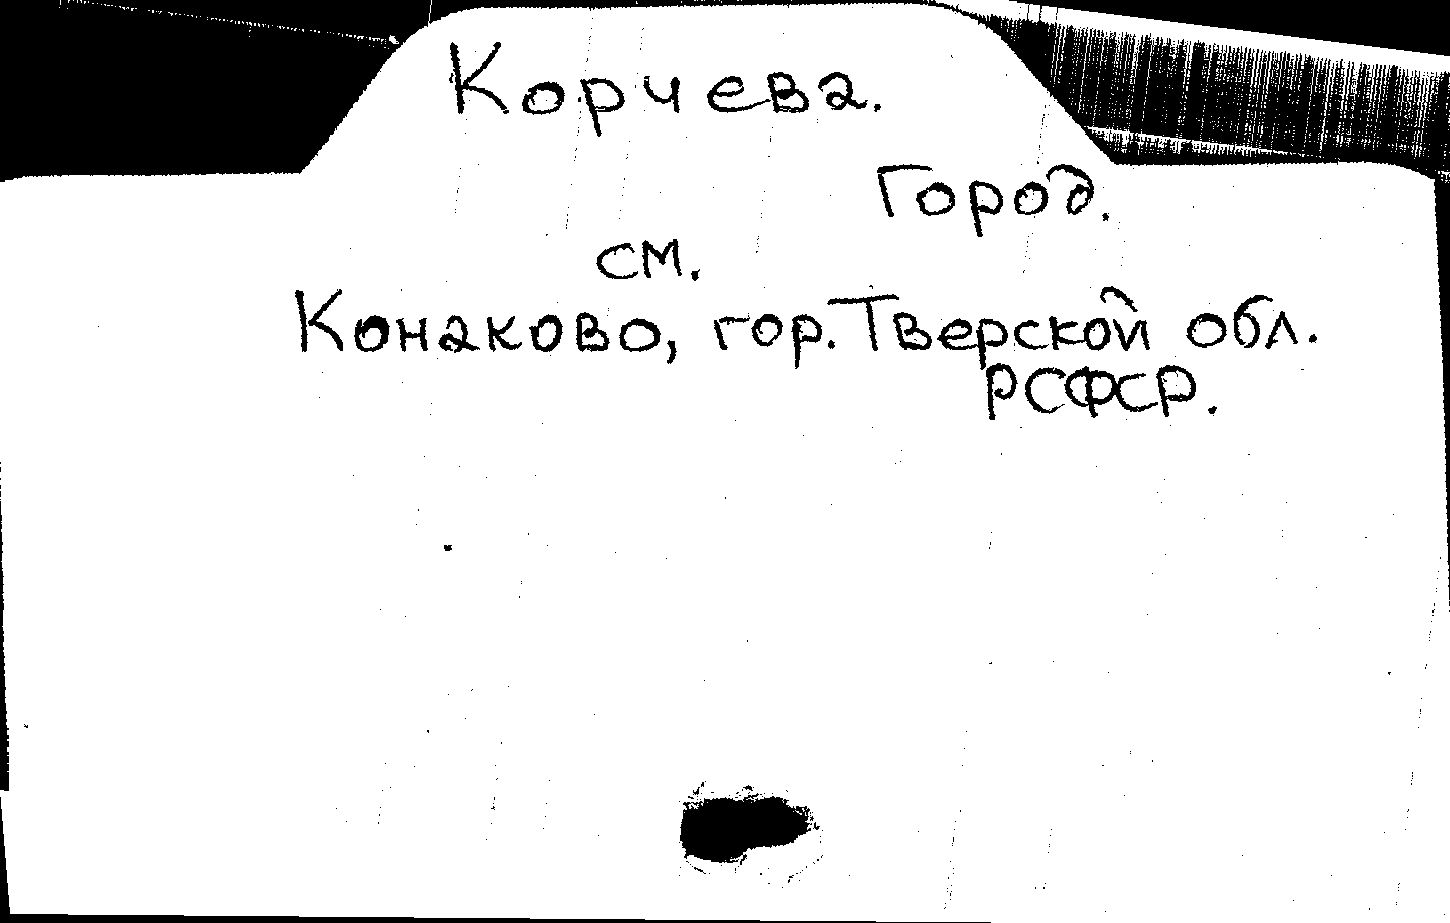 Корчева.
Город.
см.
Конаково, гор. Тверской обл.
РСФСР.